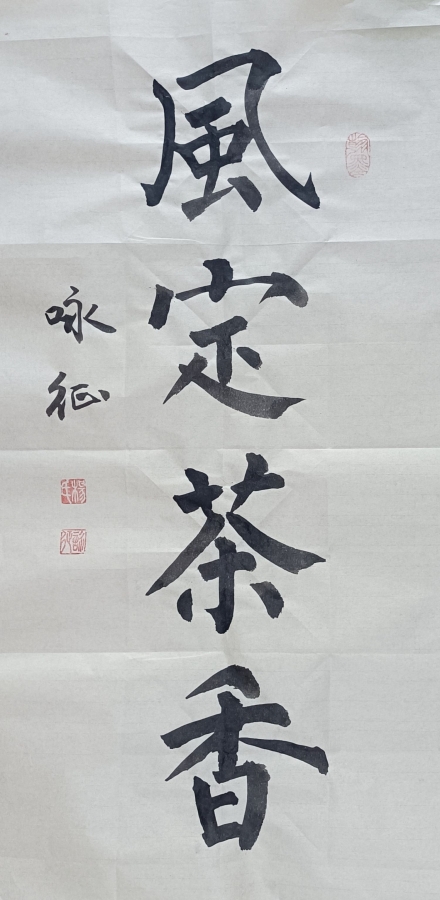 風定茶香
咏征